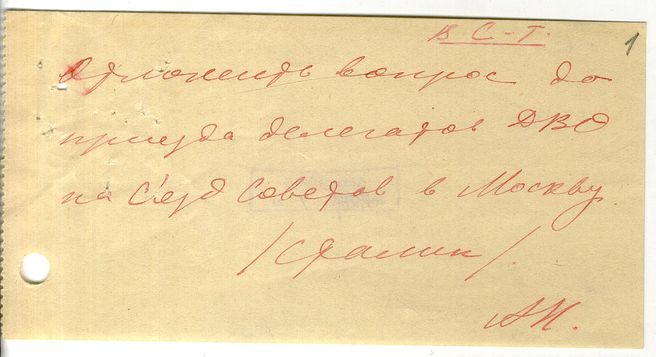 В С-т.
1
Отложить вопрос до
приезда делегатов ДВО
на С'езд Советов в Москву.
/Сталин/.